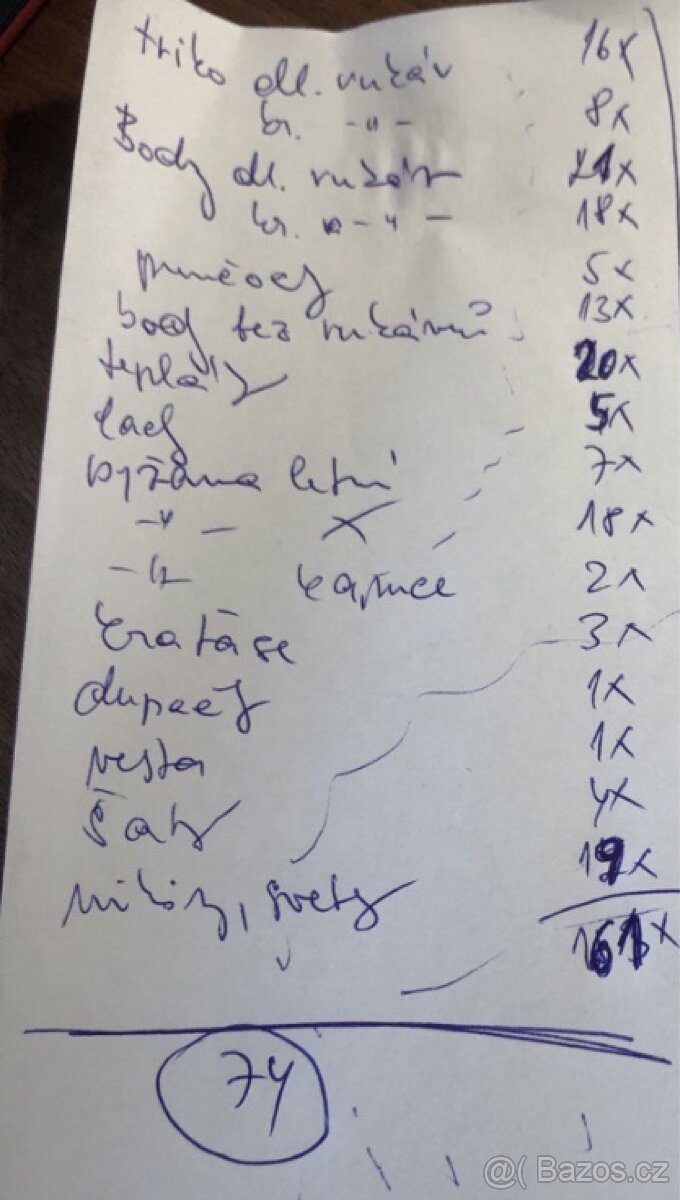 triko dl. rukáv 16x
kr. -"- 8x
Body dl. rukáv 21x
kr. -"- 18x
punčochy 5x
body bez rukávů 13x
tepláky 20x
lacl 5x
pyžama letní 7x
-"- X 18x
-"- kapuce 2x
kraťáse 3x
dupačky 1x
vesta 1x
šaty 4x
mikiny, svetry 19x
161x
74
@( Bazos.cz